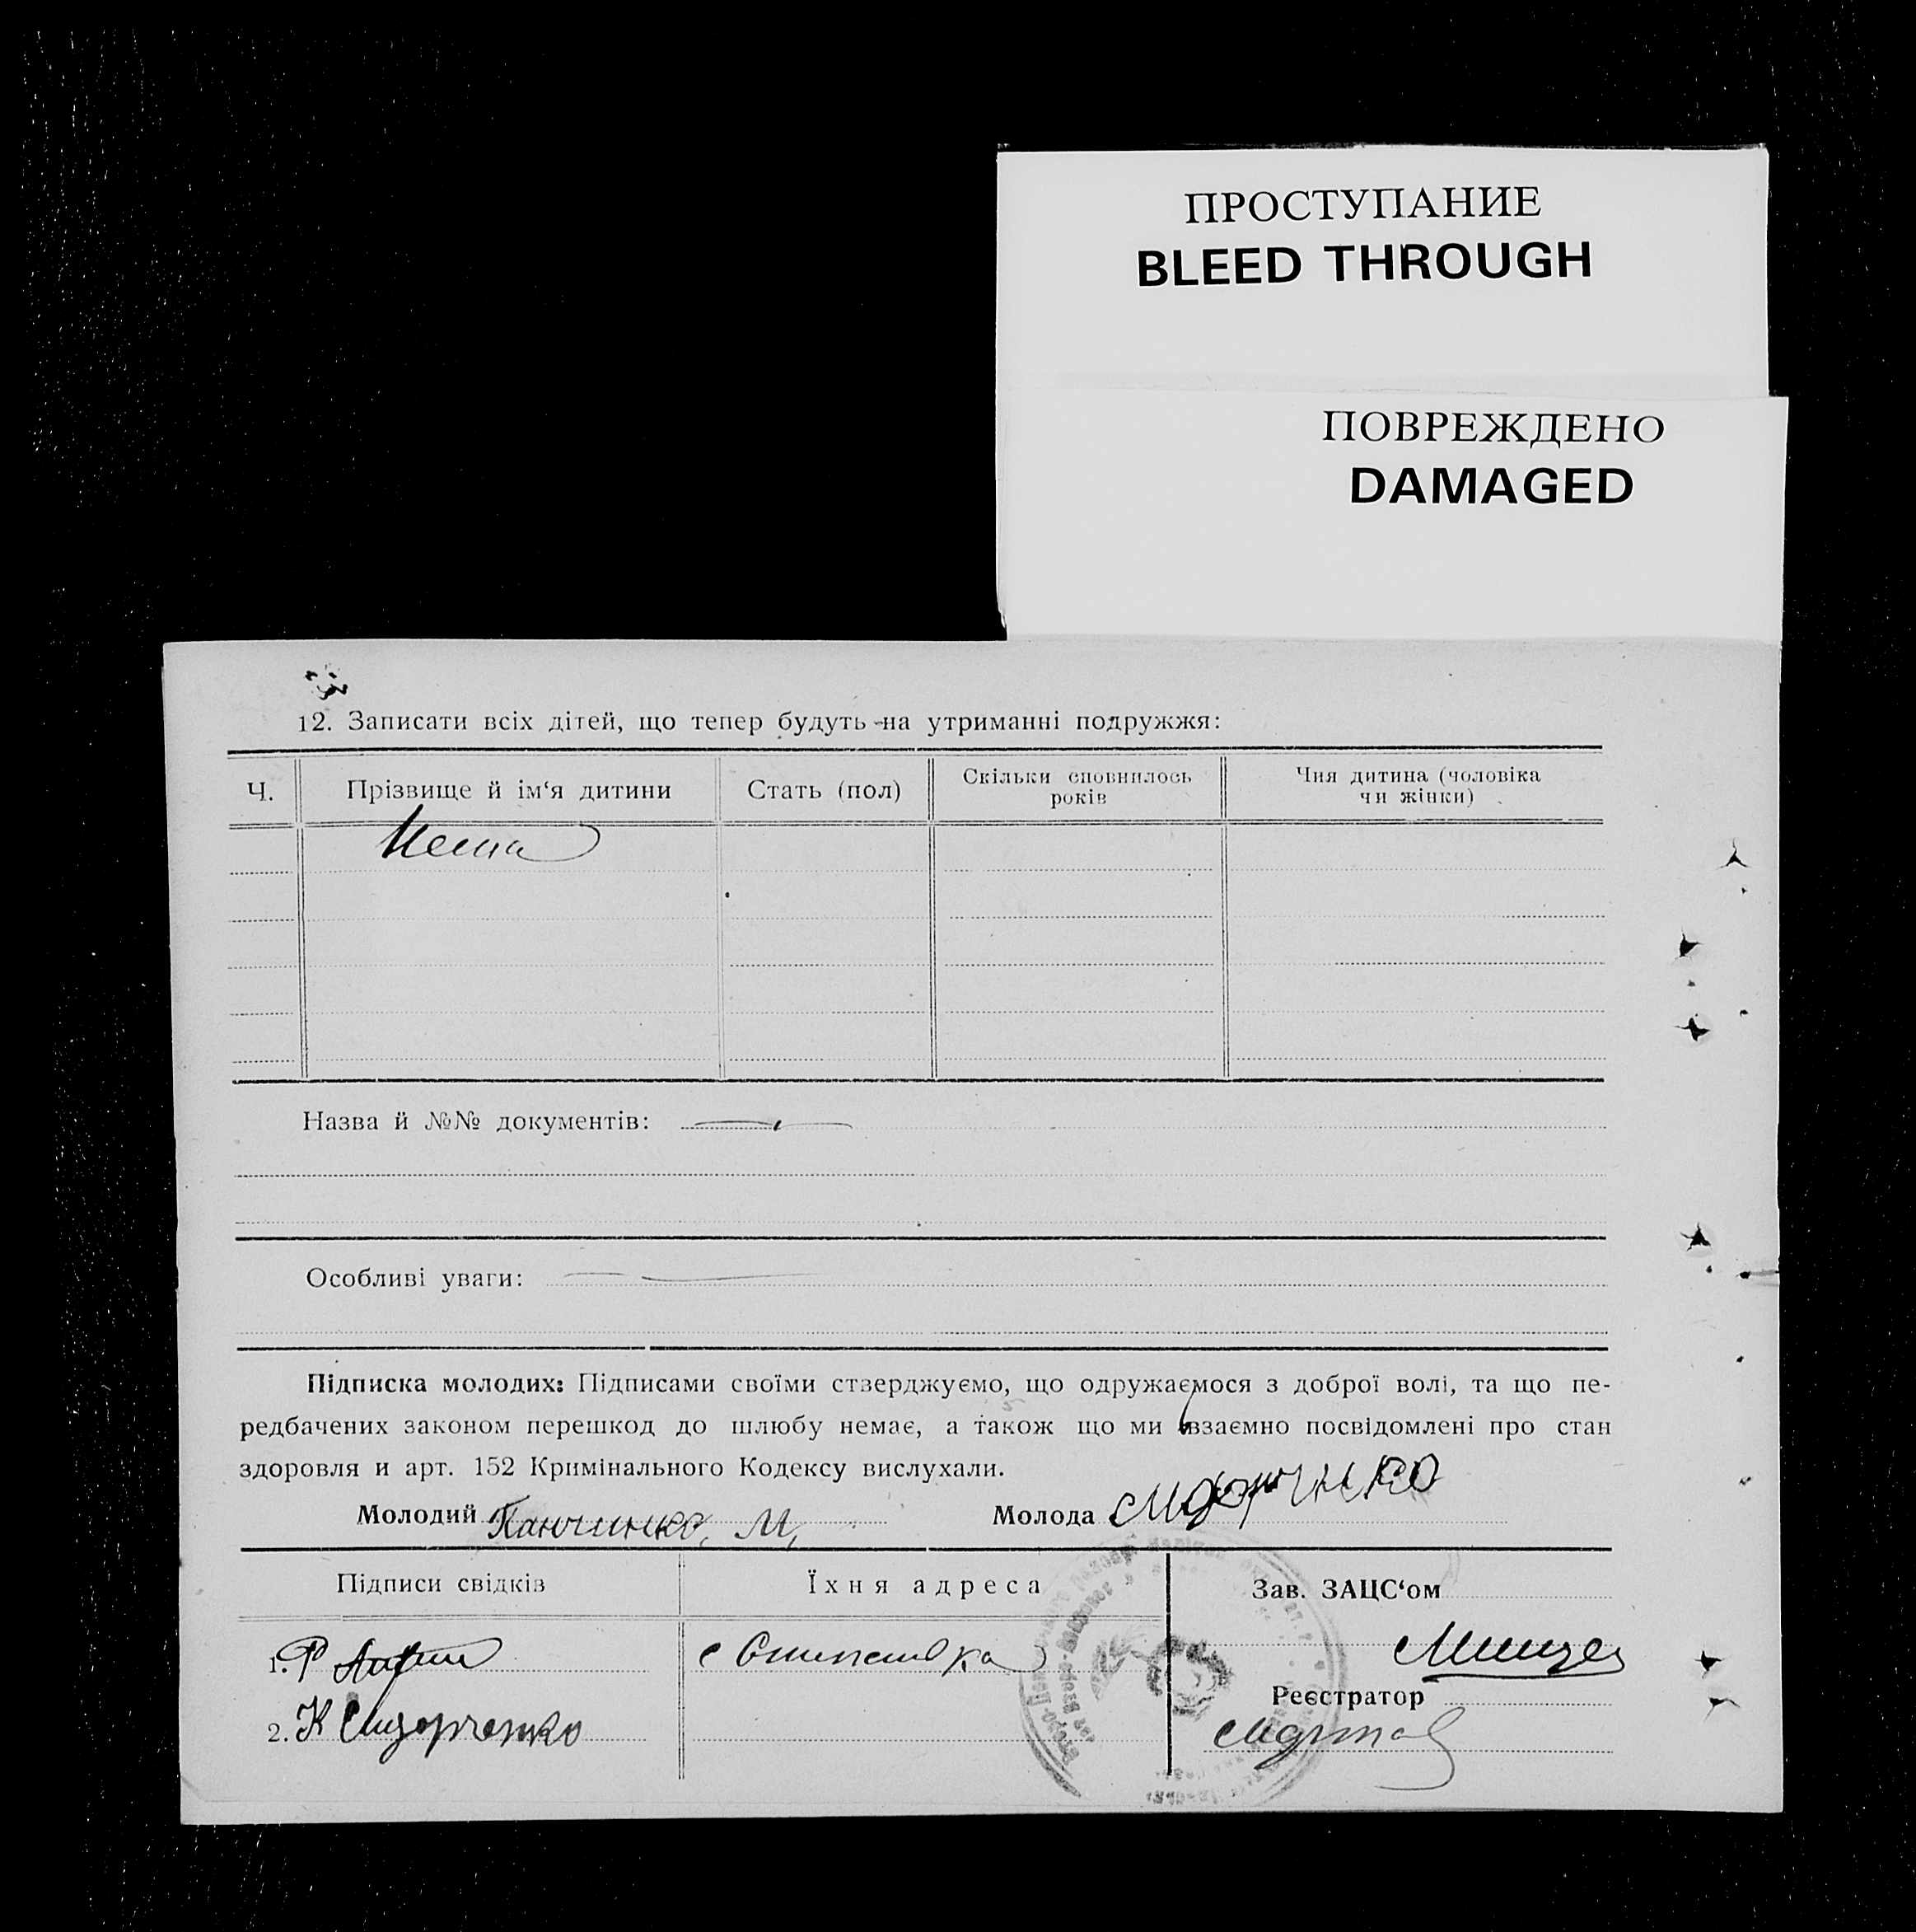 ПРОСТУПАНИЕ
BLEED THROUGH
ПОВРЕЖДЕНО
DAMAGED
12. Записати всіх дітей, що тепер будуть на утриманні подружжя:
Ч.
Прізвище й ім‘я дитини
Стать (пол)
Скільки сповнилось
років
Чия дитина (чоловіка
чи жінки)
Нема
Назва й №№ документів:
Особливі уваги:
Підписка молодих: Підписами своїми стверджуємо, що одружаємося з доброї волі, та що пе-
редбачених законом перешкод до шлюбу немає, а також що ми взаємно посвідомлені про стан
здоровля и арт. 152 Кримінального Кодексу вислухали.
Молодий М,
Молода
Підписи свідків
Їхня адреса
Зав. ЗАЦС‘ом
1. Р
с
Реєстратор
2. К Сидорченко